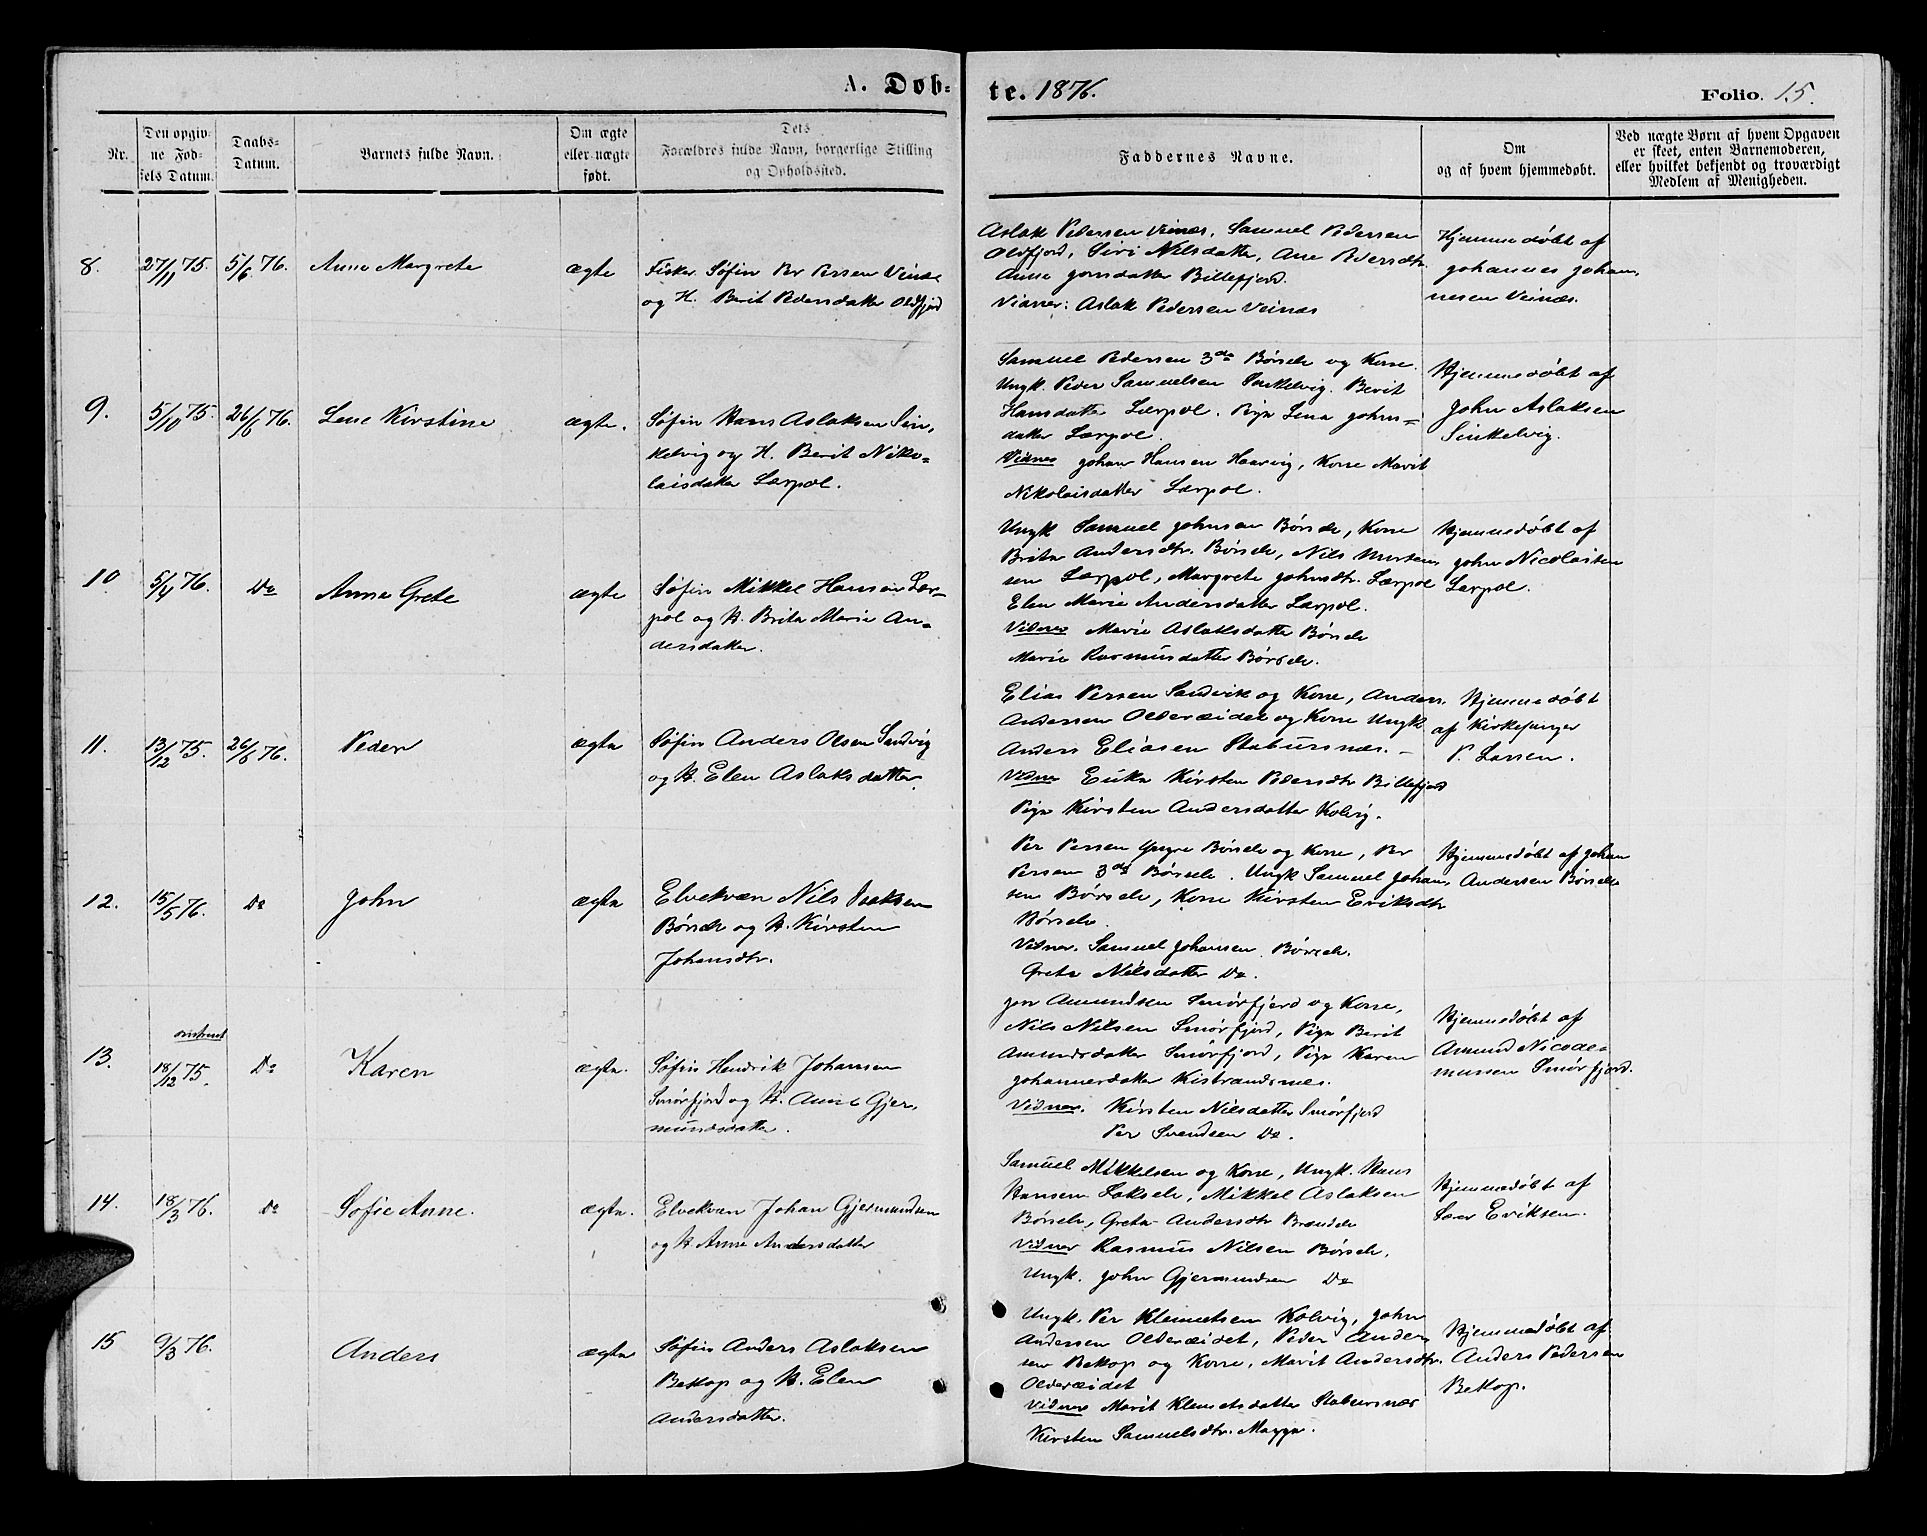 A. Døb-
te. 1876.
Folio. 15.
Nr.
Den opgiv-
ne Fød-
sels Datum.
Daabs-
Datum.
Barnets fulde Navn.
Om ægte
eller uægte
født.
Dets
Forældres fulde Navn, borgerlige Stilling
og Opholdssted.
Faddernes Navne.
Om
og af hvem hjemmedøbt.
Ved uægte Børn af hvem Opgaven
er skeet, enten Barnemoderen,
eller hvilket bekjendt og troværdigt
Medlem af Menigheden.
8. 27/11 75. 5/6 76. Anne Margrete ægte
Fisker Søfin Per Persen Veinæs
og H. Berit Pedersdatter Oldfjord
Aslak Pedersen Veinæs, Samuel Pedersen
Oldfjord, Siri Nilsdatter, Ane Pedersdtr.
Anne Jonsdatter Billefjord.
Vidner: Aslak Pedersen Veinæs
Hjemmedøbt af
Johannes Johan-
nesen Veinæs.
9. 5/10 75. 26/6 76. Lene Kirstine ægte.
Søfin Hans Aslaksen Sin-
kelvig og H. Berit Niko-
laisdatter Lærpol.
Samuel Pedersen 3de Børsele og Kone.
Ungk. Peder Samuelsen Sinkelvig. Berit
Hansdatter Lærpol. Pige Lena Johns-
datter Lærpol.
Vidner Johan Hansen Haavig, Kone Marit
Nikolaisdatter Lærpol.
Hjemmedøbt af
John Aslaksen
Sinkelvig.
10 5/4 76. Do Anne Grete ægte
Søfin Mikkel Hansen Lær-
pol og H. Brita Marie An-
dersdatter.
Ungk Samuel Johnsen Børsele, Kone
Brita Andersdtr. Børsele, Nils Morten-
sen Lærpol, Margrete Johnsdtr. Lærpol
Elen Marie Andersdatter Lærpol.
Vidner Marie Aslaksdatter Børsele
Marie Rasmusdatter Børsele.
Hjemmedøbt af
John Nicolaisen
Lærpol.
11. 13/12 75. 26/6 76. Peder ægte
Søfin Anders Olsen Sandvig
og H. Elen Aslaksdatter.
Elias Persen Sandvik og Kone, Anders
Andersen Oldereidet og Kone Ungk
Anders Eliasen Stabursnæs.
Vidner Enka Kirsten Pedersdtr Billefjord
Pige Kirsten Andersdatter Kolvig.
Hjemmedøbt
af Kirkesanger
P. Larsen.
12. 15/5 76. Do John ægte
Elvekvæn Nils Isaksen
Børsele og H. Kirsten
Johansdtr.
Per Persen Yngre Børsele og Kone, Per
Persen 3die Børsele. Ungk Samuel Johan-
sen Børsele, Kone Kirsten Eriksdtr
Børsele.
Vidner. Samuel Johansen Børsele.
Grete Nilsdatter Do.
Hjemmedøbt af Johan
Andersen Børsele
13. 18/12 75. Do Karen ægte.
Søfin Hendrik Johansen
Smørfjord og H. Anne Gjer-
mundsdatter.
Jon Amundsen Smørfjord og Kone,
Nils Nilsen Smørfjord, Pige Berit
Amundsdatter Smørfjord, Pige Karen
Johannesdatter Kistrandsnæs.
Vidner. Kirsten Nilsdatter Smørfjord
Per Svendsen Do.
Hjemmedøbt af
Amund Nicode-
mussen Smørfjord.
14. 18/3 76. Do Sofie Anne. ægte.
Elvekvæn Johan Gjermundsen
og H Anne Andersdatter
Samuel Mikkelsen og Kone, Ungk. Hans
Hansen Lakselv, Mikkel Aslaksen
Børsele, Grete Andersdtr Brændele
Vidner Rasmus Nilsen Børsele,
Ungk. John Gjermundsen Do
Hjemmedøbt af
Lars Eriksen.
15 9/3 76. Anders ægte
Søfin Anders Aslaksen
Bekkop og H. Elen
Andersdatter.
Ungk. Per Klemetsen Kolvig, John
Andersen Oldereidet, Peder Ander-
sen Bekkop og Kone, Marit Andersdtr.
Oldereidet
Vidner Marit Klemetsdatter Stabursnæs
Kirsten Samuelsdtr. Magga.
Hjemmedøbt af
Anders Pedersen
Bekkop.